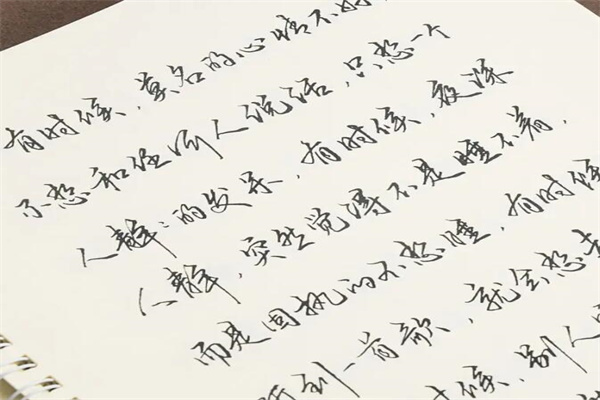 有时候,莫名的心情不好,
不想和任何人说话,只想一个
人静静的发呆,有时候,夜深
人静,突然觉得不是睡不着,
而是固执的不想睡,有时候
听到一首歌,就会想
时候,别人